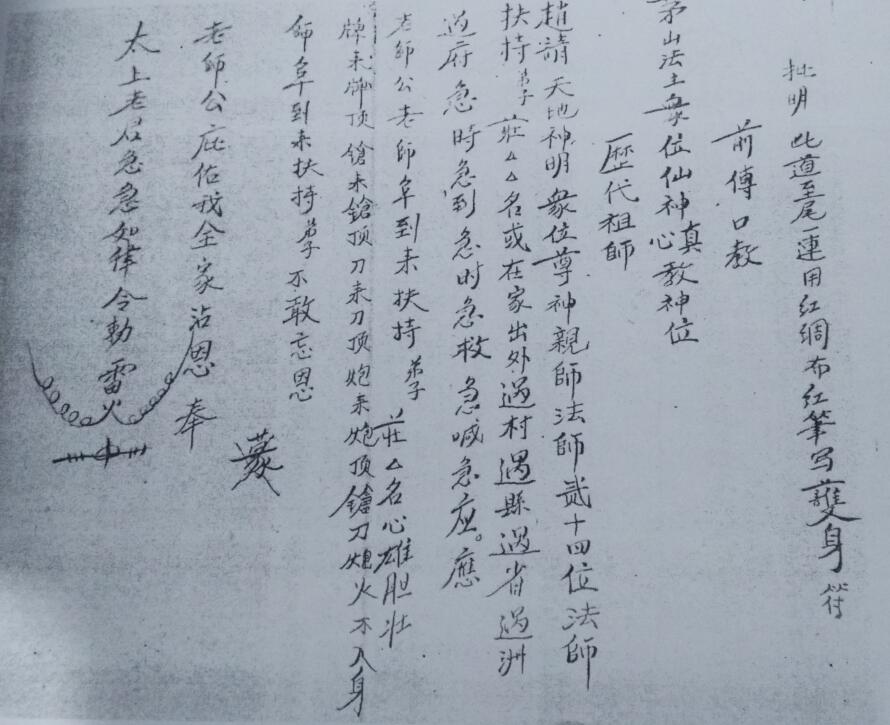 批明 此道至尾一連用红绸布红筆写護身符
前傳口教
茅山法主衆位仙神心真教神位
歷代祖師
趙請天地神明衆位尊神親師法師貳十四位法師
扶持弟子莊△△名或在家出外過村過縣過省過洲
過府急時急到急时急救急喊急应。應
老師公老師阜到来扶持弟子莊△名心雄胆壮
牌来牌顶鎗来鎗顶刀来刀顶炮来炮顶鎗刀炮火不入身
師阜到来扶持弟子不敢忘恩
蒙
老師公庇佑我全家沾恩奉
太上老君急急如律令勅雷火